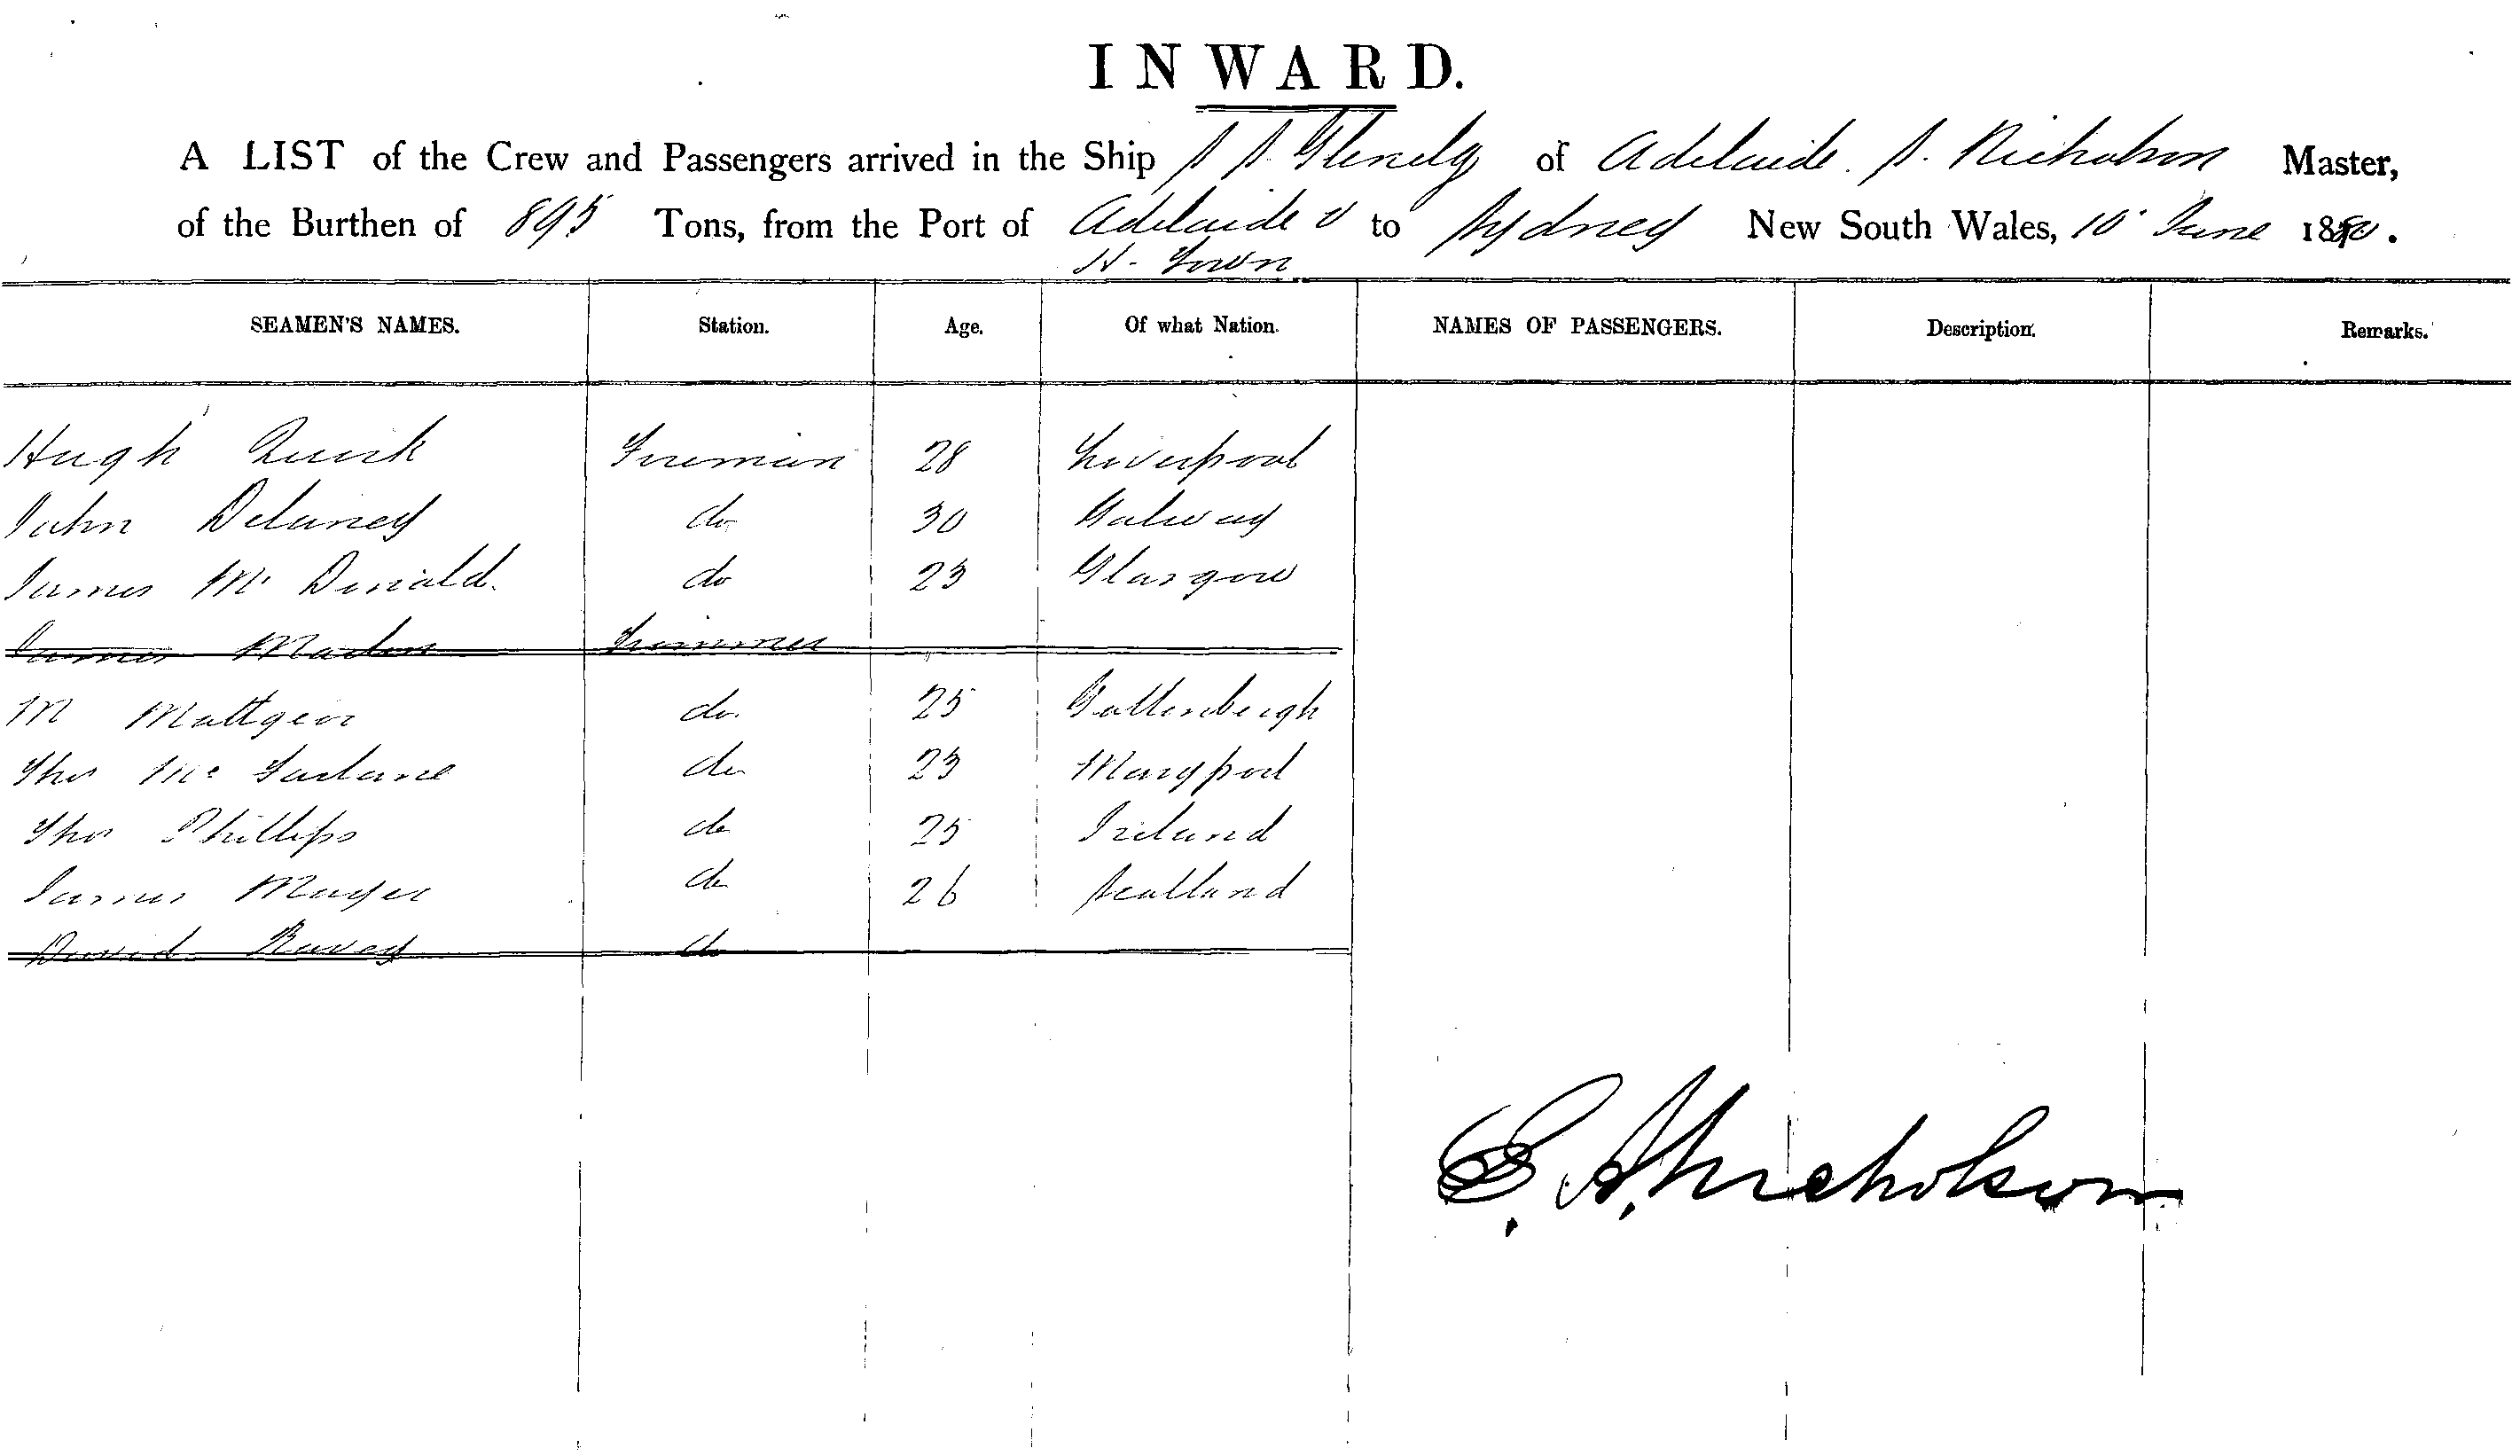 INWARD.
A LIST of the Crew and Passengers arrived in the Ship S S. Glenelg of Adelaide. S. Nicholson Master,
of the Burthen of 895 Tons, from the Port of Adelaide to Sydney New South Wales, 10 June 1880.
H. Town
SEAMEN'S NAMES. Station. Age. Of what Nation. NAMES OF PASSENGERS. Description. Remarks.
Hugh Quirk Fireman 28 Liverpool
John Delaney do 30 Galway
James Mc Donald. do 23 Glasgow
James Martin Trimmer
M do. 25
Thos Mc Farlane do 23 Maryport
Thos Phillips do 25 Ireland
James do 26 Scotland
David do
E. S. Nicholson